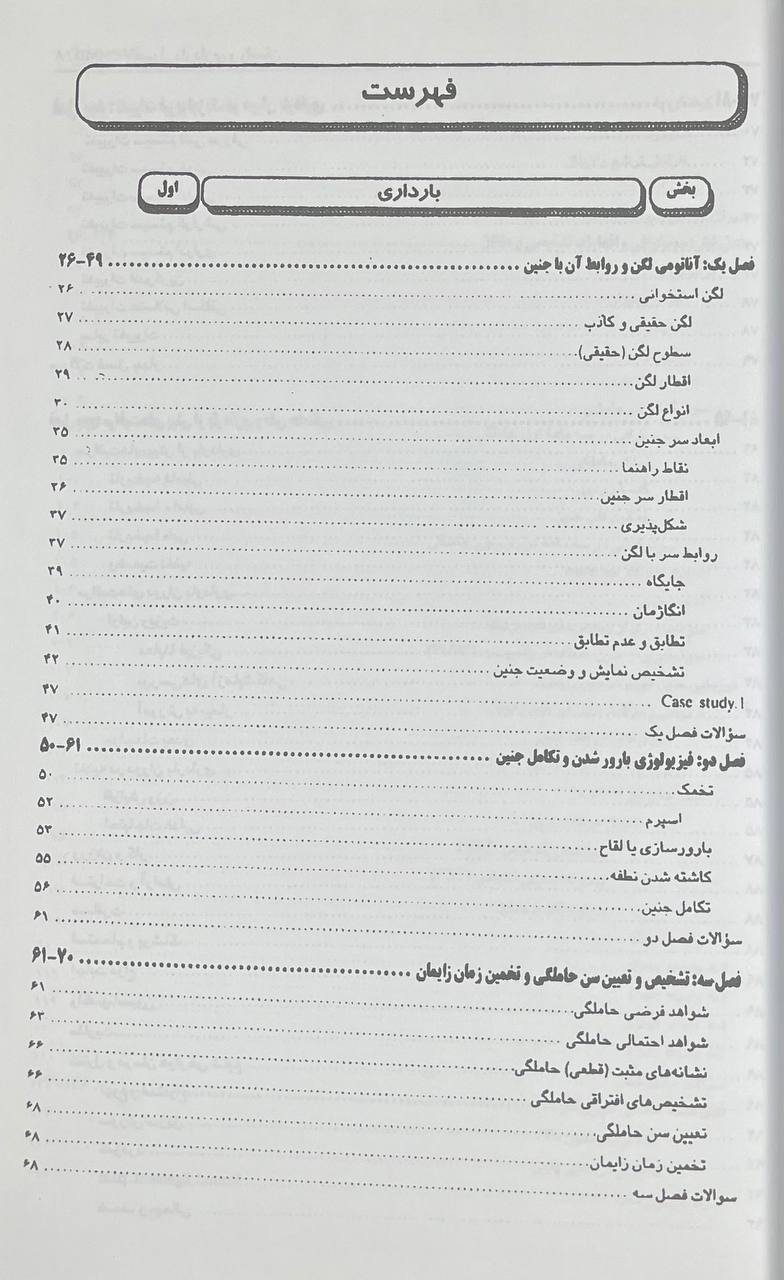 فهرست
بخش بارداری اول
فصل یک: آناتومی لگن و روابط آن با جنین ۲۶-۴۹
لگن استخوانی ۲۶
لگن حقیقی و کاذب ۲۷
سطوح لگن (حقیقی) ۲۸
اقطار لگن ۲۹
انواع لگن ۳۰
ابعاد سر جنین ۳۵
نقاط راهنما ۳۵
اقطار سر جنین ۳۶
شکل‌پذیری ۳۷
روابط سر با لگن ۳۷
جایگاه ۳۹
انگاژمان ۴۰
تطابق و عدم تطابق ۴۱
تشخیص نمایش و وضعیت جنین ۴۲
Case study.1 ۴۷
سؤالات فصل یک ۴۷
فصل دو: فیزیولوژی بارور شدن و تکامل جنین ۵۰-۶۱
تخمک ۵۰
اسپرم ۵۲
بارورسازی یا لقاح ۵۳
کاشته شدن نطفه ۵۵
تکامل جنین ۵۶
سؤالات فصل دو ۶۱
فصل سه: تشخیص و تعیین سن حاملگی و تخمین زمان زایمان ۶۱-۷۰
شواهد فرضی حاملگی ۶۱
شواهد احتمالی حاملگی ۶۳
نشانه‌های مثبت (قطعی) حاملگی ۶۶
تشخیص‌های افتراقی حاملگی ۶۶
تعیین سن حاملگی ۶۸
تخمین زمان زایمان ۶۸
سوالات فصل سه ۶۸